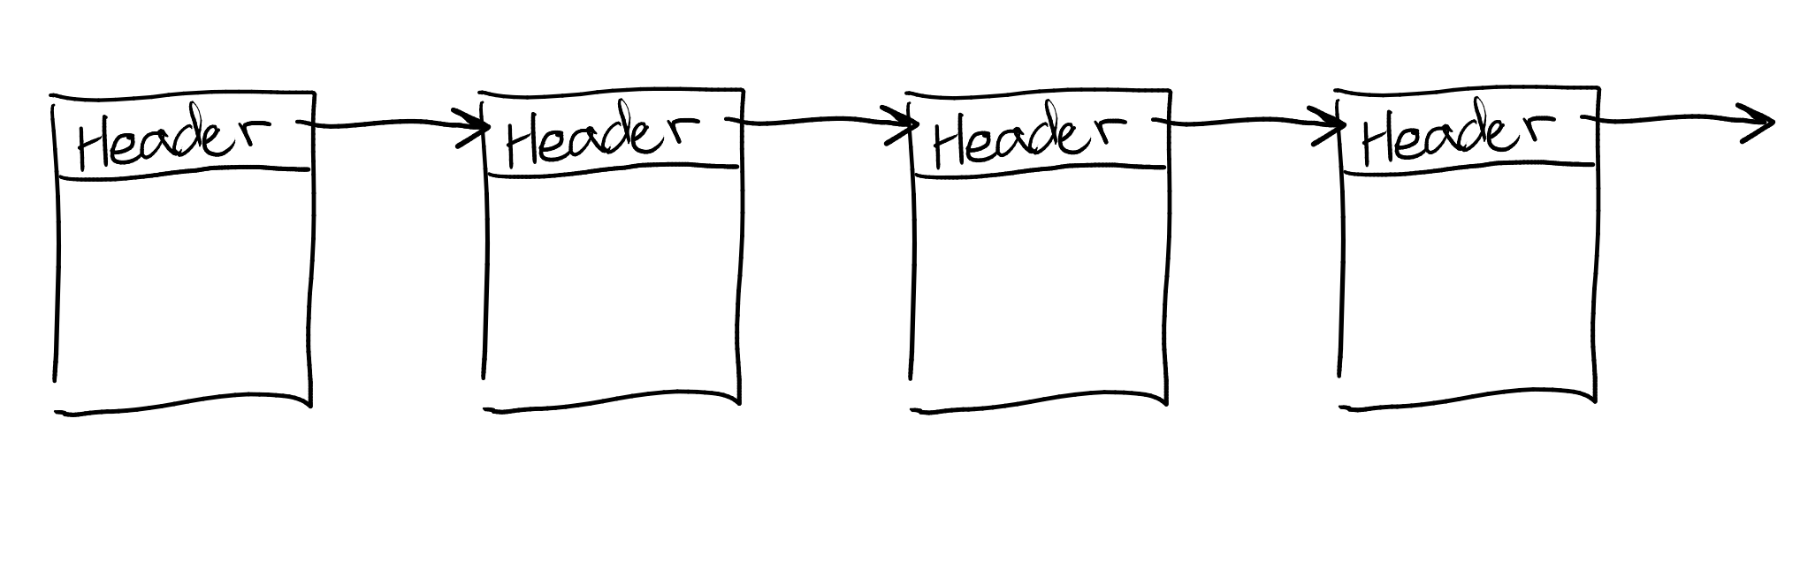 Header Header Header Header